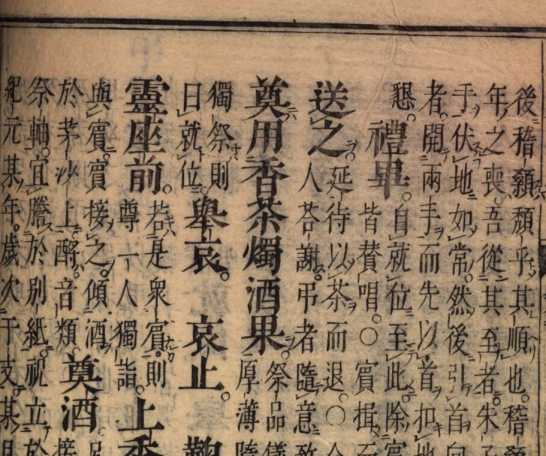 後稽顙頽乎其順也。稽顙
年之喪。吾從其至者。朱子
手伏地如常。然後引首向
者。開兩手而先以首扣地
懇。
禮畢。自就位至此除賓
皆贊唱。○賓揖
送之。延待以茶而退。○
人荅謝。弔者隨意致
奠用香茶燭酒果。祭品儀
厚薄隨
獨祭則
日就位。舉哀。哀止。鞠
靈座前。若是衆賓。則
尊一人獨詣。上香
與賓。賓接之。傾酒
於茅沙上。酹。音類。奠酒接
祭軸。宜謄於別紙。祝立於
紀元某年。歲次干支。某月